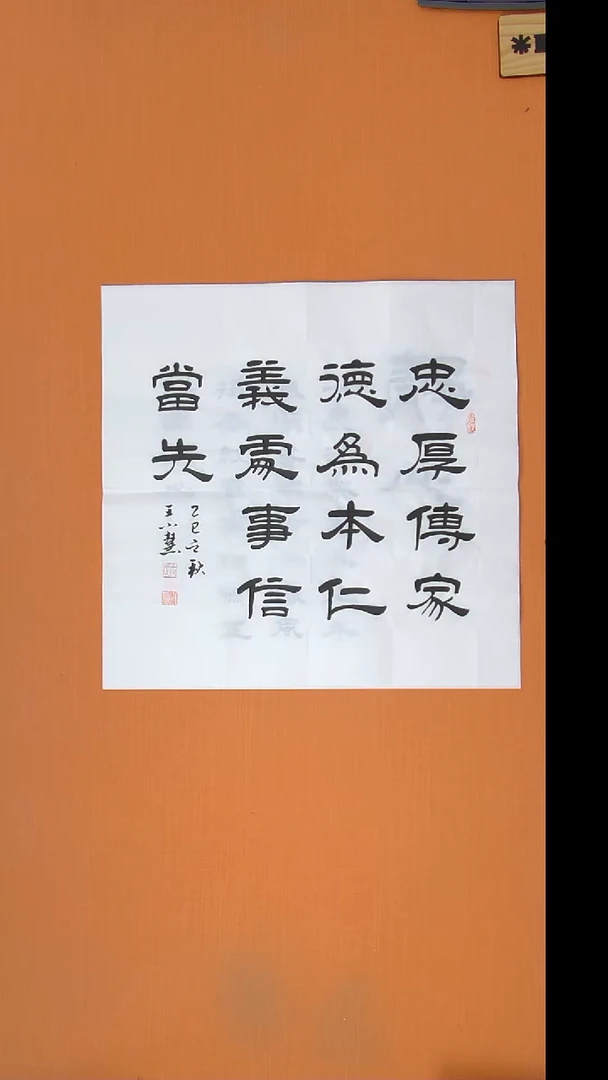 忠厚傳家
德為本仁
義處事信
當先
乙巳之秋
王小慧